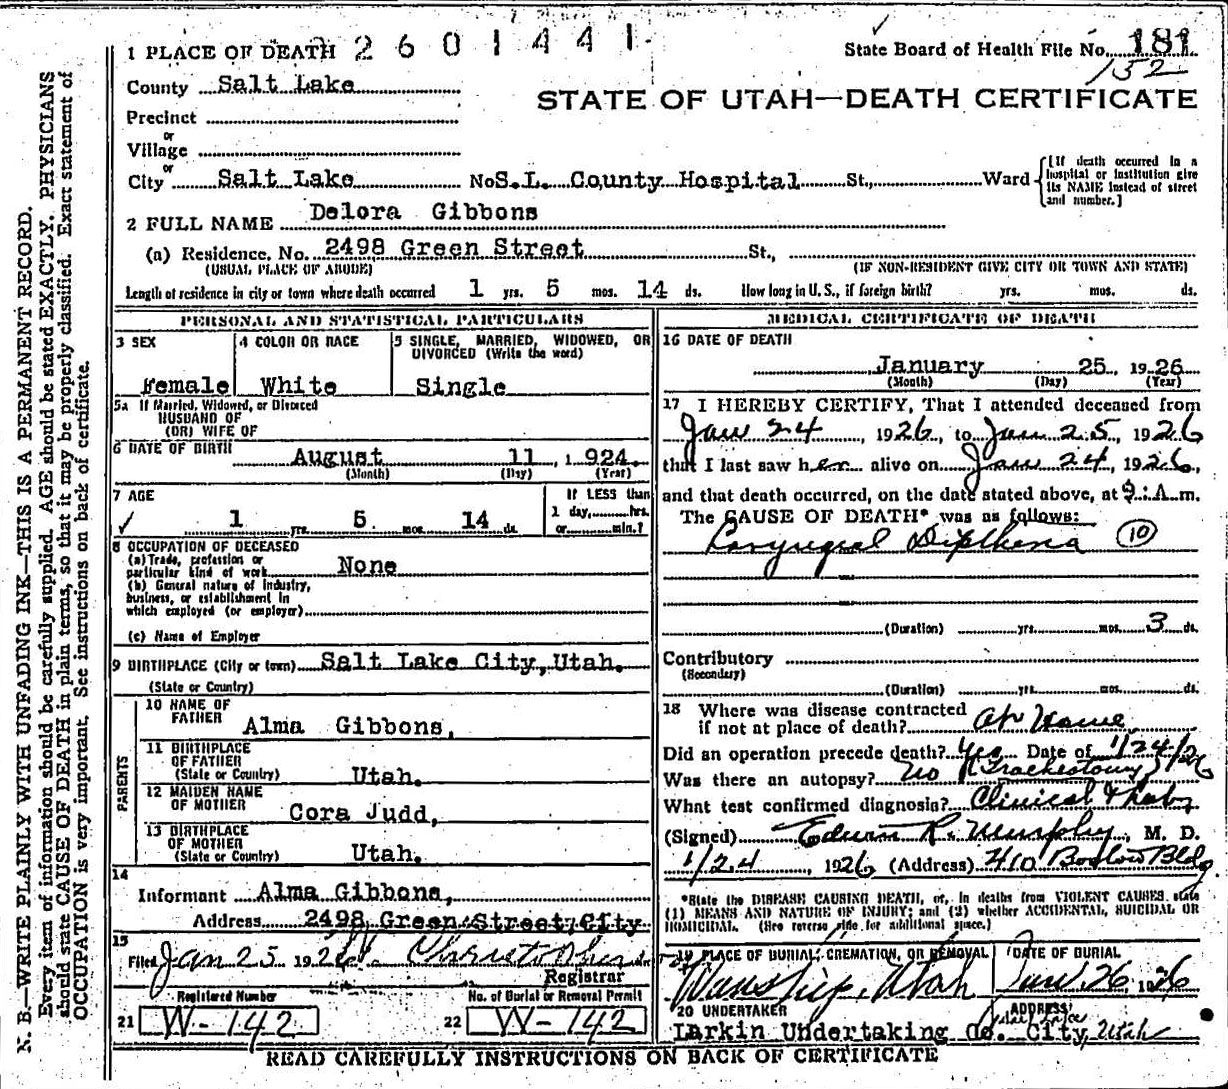 1 PLACE OF DEATH 2601441
State Board of Health File No. 181
152
County Salt Lake
STATE OF UTAH—DEATH CERTIFICATE
Precinct
or
Village
or
City Salt Lake No. S.L. County Hospital St., Ward
[If death occurred in a hospital or institution give its NAME instead of street and number.]
2 FULL NAME Delora Gibbons
(a) Residence. No. 2498 Green Street St.,
(USUAL PLACE OF ABODE) (IF NON-RESIDENT GIVE CITY OR TOWN AND STATE)
Length of residence in city or town where death occurred 1 yrs. 5 mos. 14 ds. How long in U. S., if foreign birth? yrs. mos. ds.
PERSONAL AND STATISTICAL PARTICULARS
3 SEX
Female
4 COLOR OR RACE
White
5 SINGLE, MARRIED, WIDOWED, OR
DIVORCED (Write the word)
Single
5a If Married, Widowed, or Divorced
HUSBAND OF
(OR) WIFE OF
6 DATE OF BIRTH August 11, 1924.
(Month) (Day) (Year)
7 AGE
1 yrs. 5 mos. 14 ds.
If LESS than
1 day, hrs.
or min.?
8 OCCUPATION OF DECEASED
(a) Trade, profession or
particular kind of work None
(b) General nature of Industry,
business, or establishment in
which employed (or employer)
(c) Name of Employer
9 BIRTHPLACE (City or town) Salt Lake City, Utah.
(State or Country)
PARENTS
10 NAME OF
FATHER Alma Gibbons,
11 BIRTHPLACE
OF FATHER
(State or Country) Utah.
12 MAIDEN NAME
OF MOTHER Cora Judd,
13 BIRTHPLACE
OF MOTHER
(State or Country) Utah.
14
Informant Alma Gibbons,
Address 2498 Green Street, City
15
Filed Jan 25 1926
Registrar
Registered Number No. of Burial or Removal Permit
21 W-142 22 W-142
MEDICAL CERTIFICATE OF DEATH
16 DATE OF DEATH
January 25, 1926
(Month) (Day) (Year)
17 I HEREBY CERTIFY, That I attended deceased from
Jan 24, 1926, to Jan 25, 1926
that I last saw her alive on Jan 24, 1926,
and that death occurred, on the date stated above, at 9: A.m.
The CAUSE OF DEATH* was as follows:
Laryngeal Diptheria (10)
(Duration) yrs. mos. 3 ds.
Contributory
(Secondary)
(Duration) yrs. mos. ds.
18 Where was disease contracted
if not at place of death? At Home
Did an operation precede death? Yes Date of 1/24/26
Was there an autopsy? No (Tracheotomy)
What test confirmed diagnosis? Clinical & Lab,
(Signed) Edwin R. Murphy, M. D.
1/24, 1926 (Address) 410 Boston Bldg.
*State the DISEASE CAUSING DEATH, or, in deaths from VIOLENT CAUSES, state
(1) MEANS AND NATURE OF INJURY; and (2) whether ACCIDENTAL, SUICIDAL OR
HOMICIDAL. (See reverse side for additional space.)
19 PLACE OF BURIAL, CREMATION, OR REMOVAL
Wanship, Utah
DATE OF BURIAL
Jan 26, 1926
20 UNDERTAKER
Larkin Undertaking Co.
ADDRESS
Salt Lake
City, Utah
READ CAREFULLY INSTRUCTIONS ON BACK OF CERTIFICATE
N. B.—WRITE PLAINLY WITH UNFADING INK—THIS IS A PERMANENT RECORD.
Every item of information should be carefully supplied. AGE should be stated EXACTLY. PHYSICIANS
should state CAUSE OF DEATH in plain terms, so that it may be properly classified. Exact statement of
OCCUPATION is very important. See instructions on back of certificate.